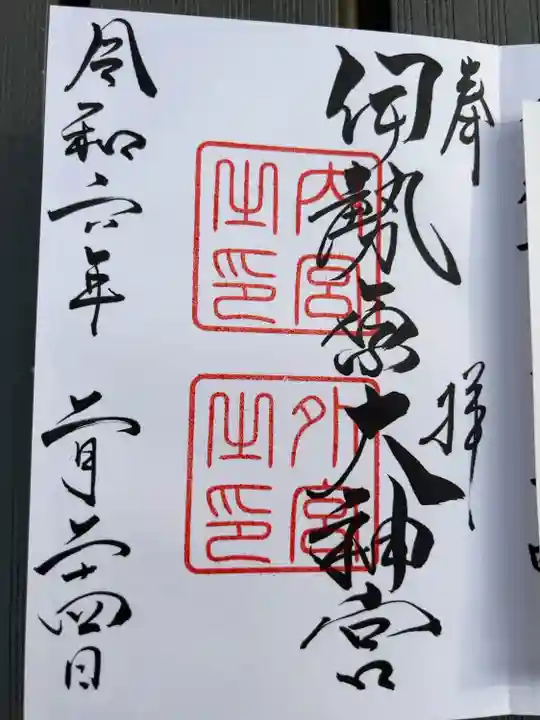 奉拝
伊勢原大神宮
内宮之印
外宮之印
令和六年 二月二十四日